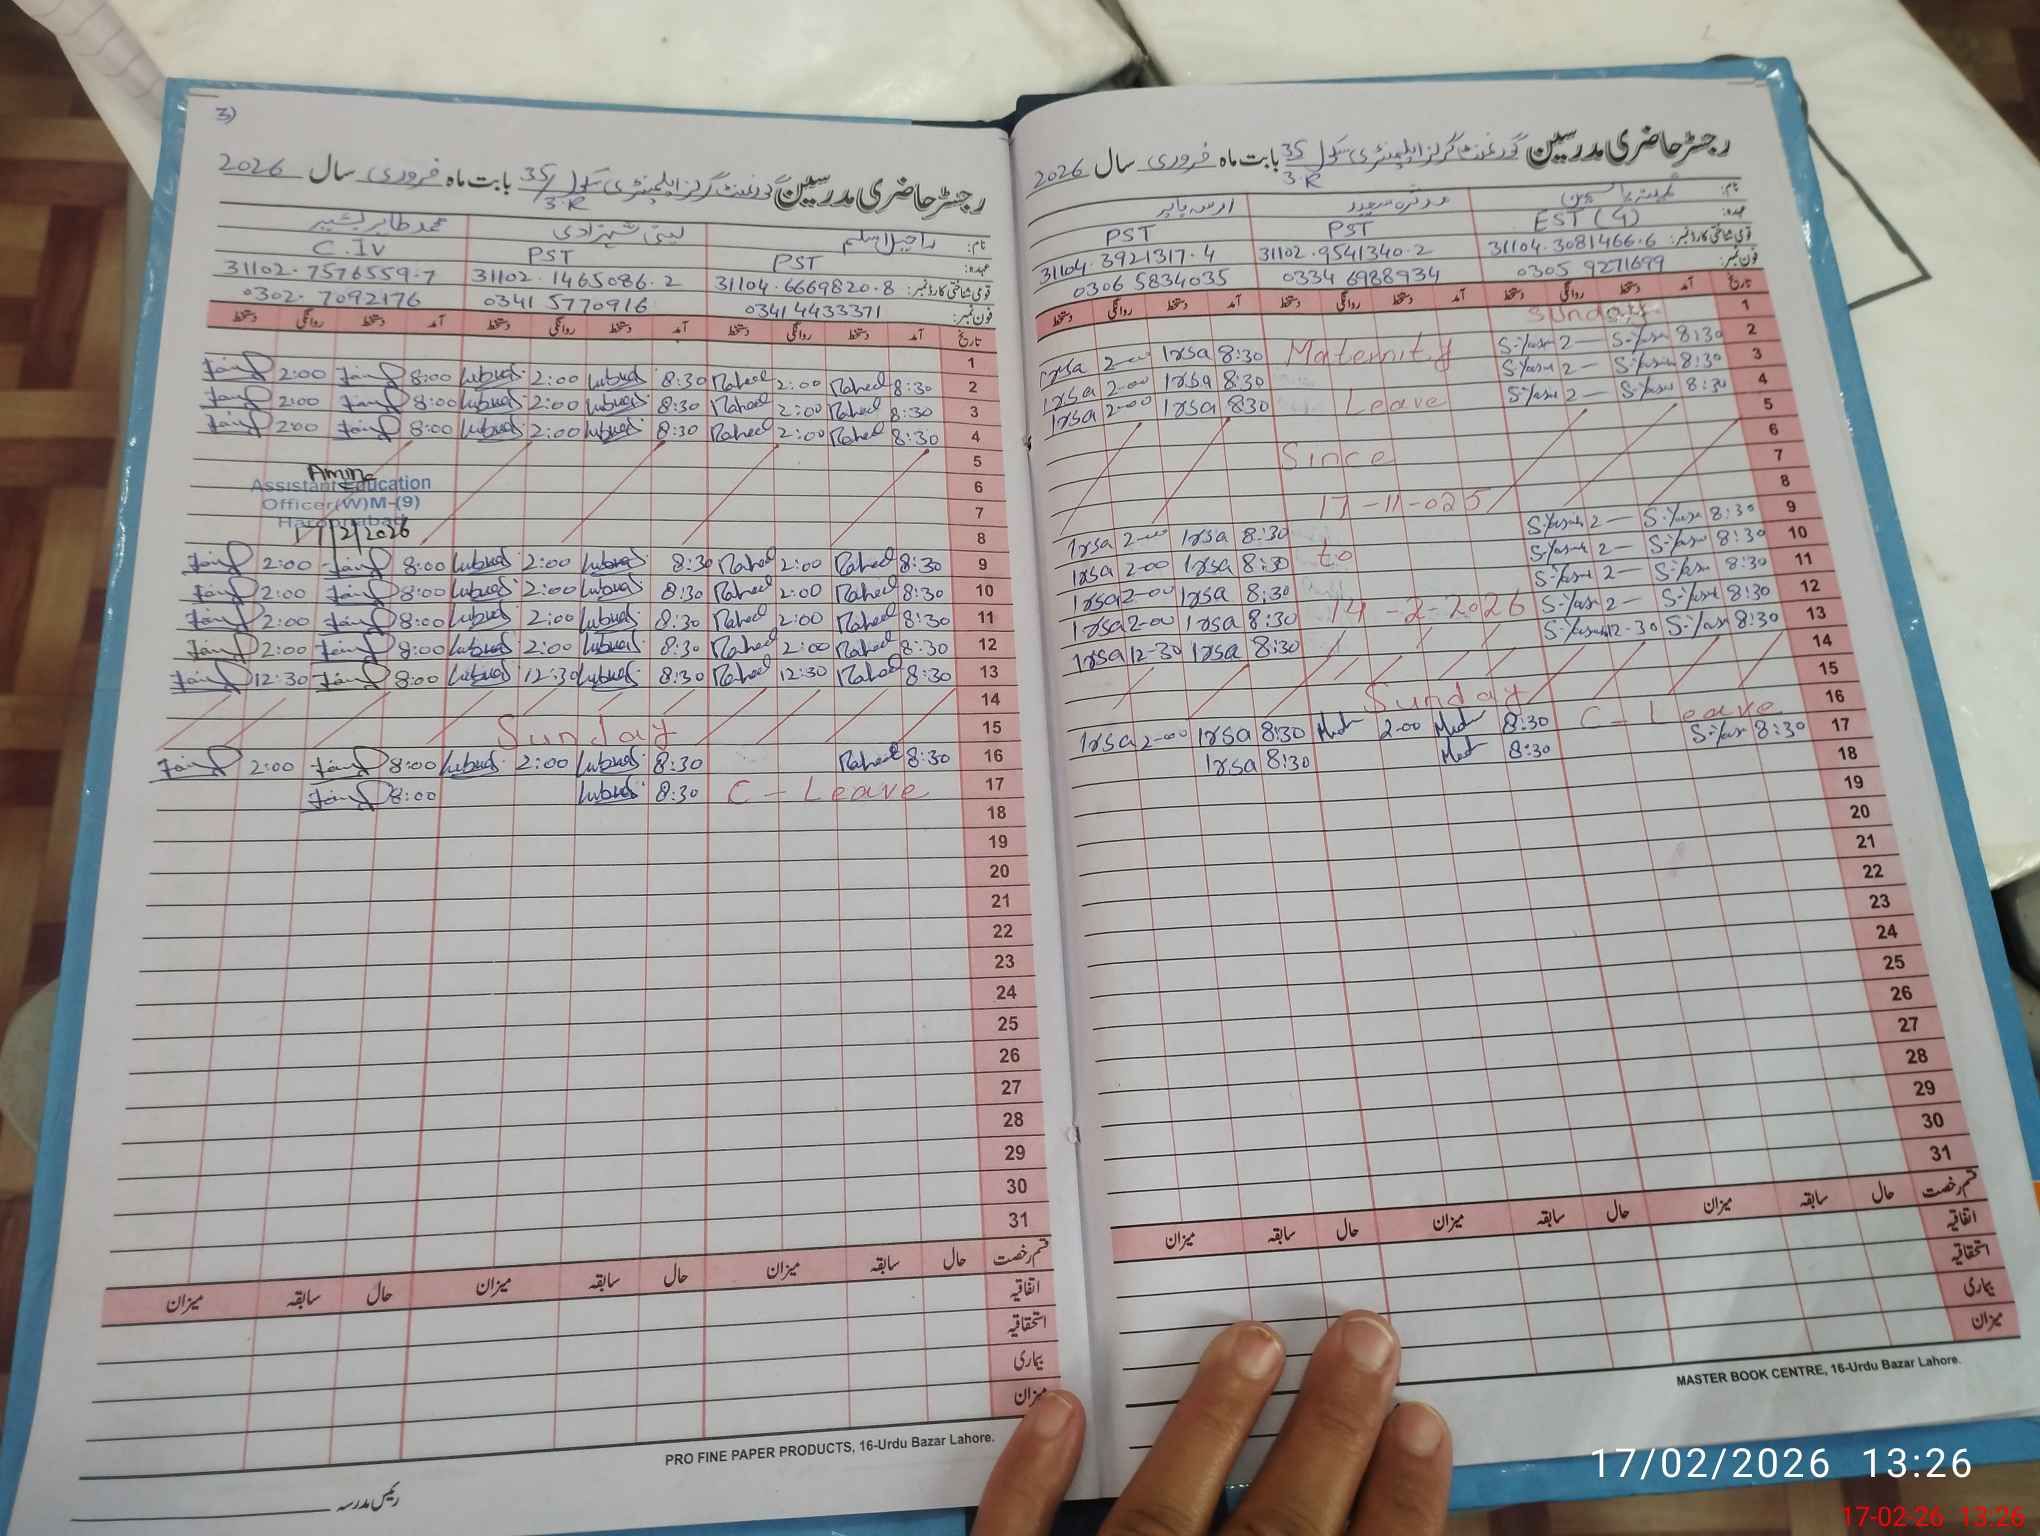 3)
رجسٹر حاضری مدرسین گورنمنٹ گرلز ایلیمنٹری سکول 35/3.R بابت ماہ فروری سال 2026
نام: راحیل اسلم لبنیٰ شہزادی محمد طاہر بشیر
عہدہ: PST PST C.IV
قومی شناختی کارڈ نمبر: 31104.6669820.8 31102.1465086.2 31102.7576559.7
فون نمبر: 0341 4433371 0341 5770916 0302.7092176
تاریخ آمد دستخط روانگی دستخط آمد دستخط روانگی دستخط آمد دستخط روانگی دستخط
1
2 8:30 Raheel 2:00 Raheel 8:30 Lubna 2:00 Lubna 8:00 2:00
3 8:30 Raheel 2:00 Raheel 8:30 Lubna 2:00 Lubna 8:00 2:00
4 8:30 Raheel 2:00 Raheel 8:30 Lubna 2:00 Lubna 8:00 2:00
5
Amina
6
Assistant Education
Officer(W)M-(9)
7
Haroonabad
17/2/2026
8
9 8:30 Raheel 2:00 Raheel 8:30 Lubna 2:00 Lubna 8:00 2:00
10 8:30 Raheel 2:00 Raheel 8:30 Lubna 2:00 Lubna 8:00 2:00
11 8:30 Raheel 2:00 Raheel 8:30 Lubna 2:00 Lubna 8:00 2:00
12 8:30 Raheel 2:00 Raheel 8:30 Lubna 2:00 Lubna 8:00 2:00
13 8:30 Raheel 12:30 Raheel 8:30 Lubna 12:30 Lubna 8:00 12:30
14
15 Sunday
16 8:30 Raheel 8:30 Lubna 2:00 Lubna 8:00 2:00
17 C - Leave 8:30 Lubna 8:00
18
19
20
21
22
23
24
25
26
27
28
29
30
31
قسم رخصت حال سابقہ میزان حال سابقہ میزان حال سابقہ میزان
اتفاقیہ
استحقاقیہ
بیماری
میزان
PRO FINE PAPER PRODUCTS, 16-Urdu Bazar Lahore.
رئیس مدرسہ
رجسٹر حاضری مدرسین گورنمنٹ گرلز ایلیمنٹری سکول 35/3.R بابت ماہ فروری سال 2026
نام: یاسمین سعید بابر
عہدہ: EST (G) PST PST
قومی شناختی کارڈ نمبر: 31104.3081466.6 31102.9541340.2 31104.3921317.4
فون نمبر: 0305 9271699 0334 6988934 0306 5834035
تاریخ آمد دستخط روانگی دستخط آمد دستخط روانگی دستخط آمد دستخط روانگی دستخط
1 Sunday
2 8:30 S.Yasm 2— S.Yasm Maternity 8:30 Irsa 2-00 Irsa
3 8:30 S.Yasm 2— S.Yasm 8:30 Irsa 2-00 Irsa
4 8:30 S.Yasm 2— S.Yasm Leave 8:30 Irsa 2-00 Irsa
5
6 Since
7
8 17-11-025
9 8:30 S.Yasm 2— S.Yasm 8:30 Irsa 2-00 Irsa
10 8:30 S.Yasm 2— S.Yasm to 8:30 Irsa 2-00 Irsa
11 8:30 S.Yasm 2— S.Yasm 8:30 Irsa 2-00 Irsa
12 8:30 S.Yasm 2— S.Yasm 14-2-2026 8:30 Irsa 2-00 Irsa
13 8:30 S.Yasm 12-30 S.Yasm 8:30 Irsa 12-30 Irsa
14
15 Sunday
16 C - Leave 8:30 2-00 8:30 Irsa 2-00 Irsa
17 8:30 S.Yasm 8:30 8:30 Irsa
18
19
20
21
22
23
24
25
26
27
28
29
30
31
قسم رخصت حال سابقہ میزان حال سابقہ میزان حال سابقہ میزان
اتفاقیہ
استحقاقیہ
بیماری
میزان
MASTER BOOK CENTRE, 16-Urdu Bazar Lahore.
17/02/2026 13:26
17-02-26 13:26